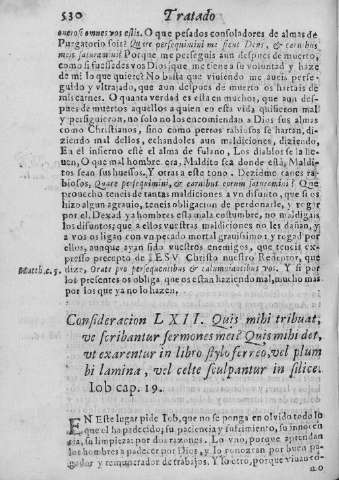 530 Tratado
onerosi omnes vos estis. O que pesados consoladores de almas de
Purgatorio sois? Quare persequimini me sicut Deus, & carnibus
meis saturamini? Porque me perseguis aun despues de muerto,
como si fuessedes vos Dios, que me tiene a su voluntad y haze
de mi lo que quiere? No basta que viviendo me aueis perse-
guido y vltrajado, que aun despues de muerto os hartais de
mis carnes. O quanta verdad es esta en muchos, que aun des-
pues de muertos aquellos a quien en esta vida quisieron mal
y persiguieron, no solo no los encomiendan a Dios sus almas
como Christianos, sino como perros rabiosos se hartan, di-
ziendo mal dellos, echandoles aun maldiciones, diziendo,
En el infierno esté el alma de fulano, Los diablos se la lle-
uen, O que mal hombre era, Maldito sea donde está, Maldi-
tos sean sus huessos, Y otras a este tono. Dezidme canes ra-
biosos, Quare persequimini, & carnibus eorum saturamini? Que
prouecho teneis de tantas maldiciones a vn difunto, que si os
hizo algun agrauio, teneis obligacion de perdonarle, y rogar
por el. Dexad ya hombres esta mala costumbre, no maldigais
los difuntos, que a ellos vuestras maldiciones no les dañan, y
a vos os ligan con vn pecado mortal grauissimo: y rogad por
ellos, aunque ayan sido vuestros enemigos, que teneis ex-
presso precepto de IESV Christo nuestro Redentor, que
Matth. c. 5. dize, Orate pro persequentibus & calumniantibus vos. Y si por
los presentes os obliga que os estan haziendo mal, mucho mas
por los que ya no lo hazen.
Consideracion LXII. Quis mihi tribuat,
ve scribantur sermones mei? Quis mihi det,
vt exarentur in libro stylo ferreo, vel plum
bi lamina, vel celte sculpantur in silice.
Iob cap. 19.
EN Este lugar pide Iob, que no se ponga en olvido todo lo
que el ha padecido, su paciencia y sufrimiento, su innocen
cia, su limpieza: por dos razones. Lo vno, porque aprendan
los hombres a padecer por Dios, y lo conozcan por buen pa-
gador y remunerador de trabajos. Y lo otro, porque
no